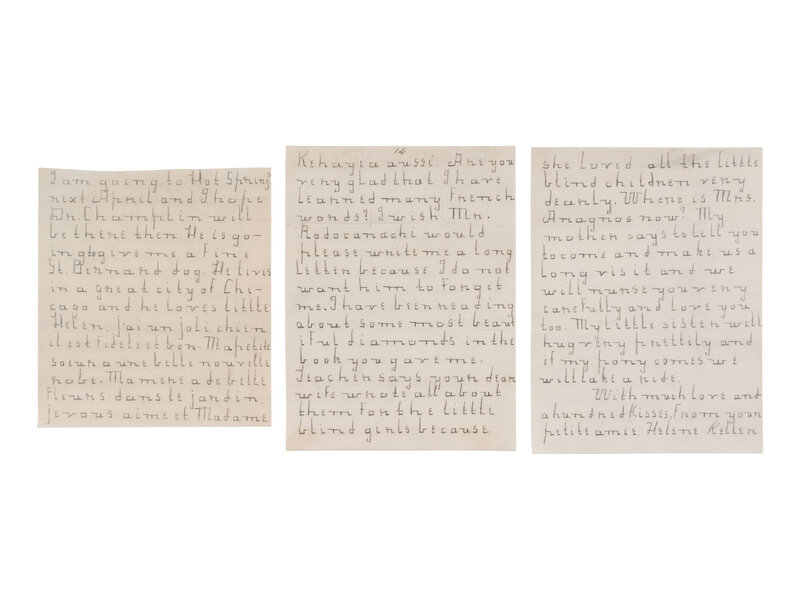 I am going to Hot Springs
next April and I hope
Dr. Champlin will
be there then. He is go-
ing to give me a fine
St. Bernard dog. He lives
in a great city of Chi-
cago and he loves little
Helen. J'ai un joli chien
il est fidele et bon. Ma petite
soeur a une belle nouvelle
robe. Ma mere a de belle
fleurs dans le jardin.
je vous aime et Madame
14
Kehayia aussi. Are you
very glad that I have
learned many French
words? I wish Mr.
Rodocanachi would
please write me a long
letter because I do not
want him to forget
me. I have been reading
about some most beaut
iful diamonds in the
book you gave me.
Teacher says your dear
wife wrote all about
them for the little
blind girls because
she loved all the little
blind children very
dearly. Where is Mrs.
Anagnos now? My
mother says to tell you
to come and make us a
long visit and we
will nurse you very
carefully and love you
too. My little sister will
hug very prettily and
if my pony comes we
will take a ride.
With much love and
a hundred kisses, From your
petite amie. Helene Keller